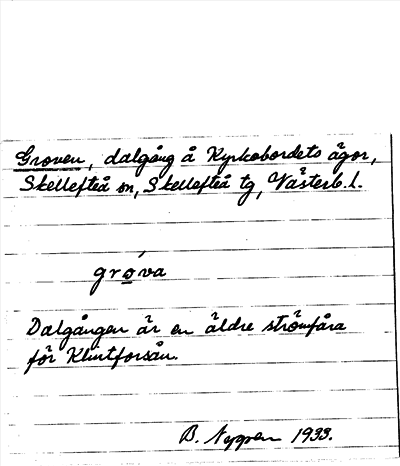 Groven, dalgång å Kyrkobordets ägor,
Skellefteå sn, Skellefteå tg, Västerb. l.
gro̲va
Dalgången är en äldre strömfåra
för Klintforsån.
B. Nygren 1933.